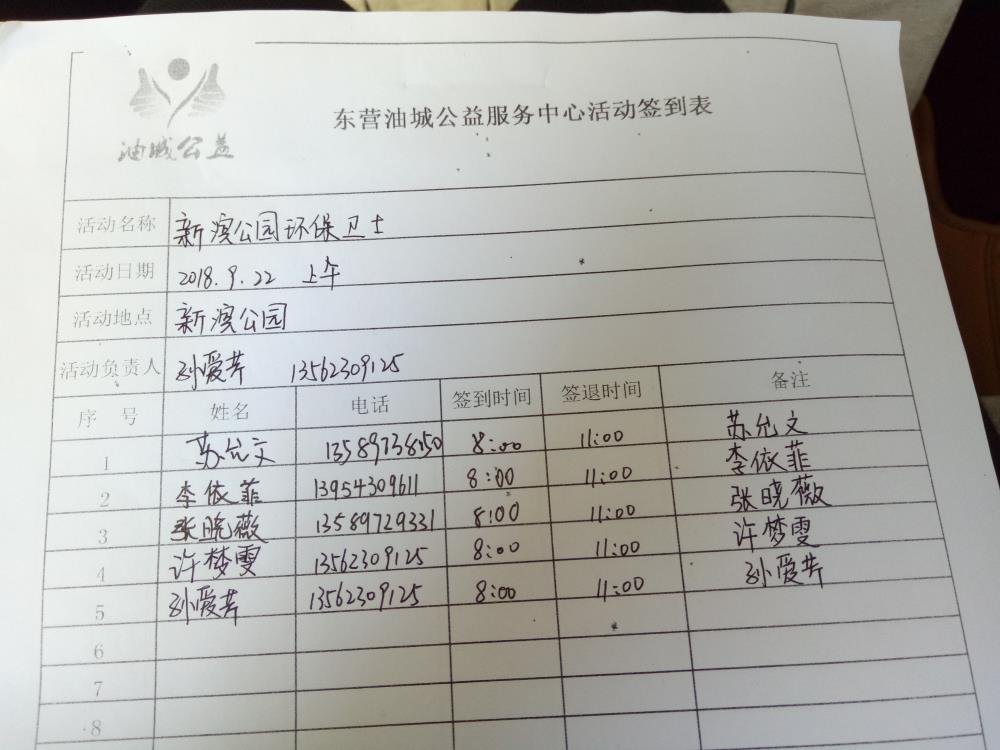 油城公益
东营油城公益服务中心活动签到表
活动名称 新滨公园环保卫士
活动日期 2018.9.22 上午
活动地点 新滨公园
活动负责人 孙爱芹 13562309125
序 号 姓名 电话 签到时间 签退时间 备注
1 苏允文 13589738150 8:00 11:00 苏允文
2 李依菲 13954309611 8:00 11:00 李依菲
3 张晓薇 13589729331 8:00 11:00 张晓薇
4 许梦雯 13562309125 8:00 11:00 许梦雯
5 孙爱芹 13562309125 8:00 11:00 孙爱芹
6
7
8